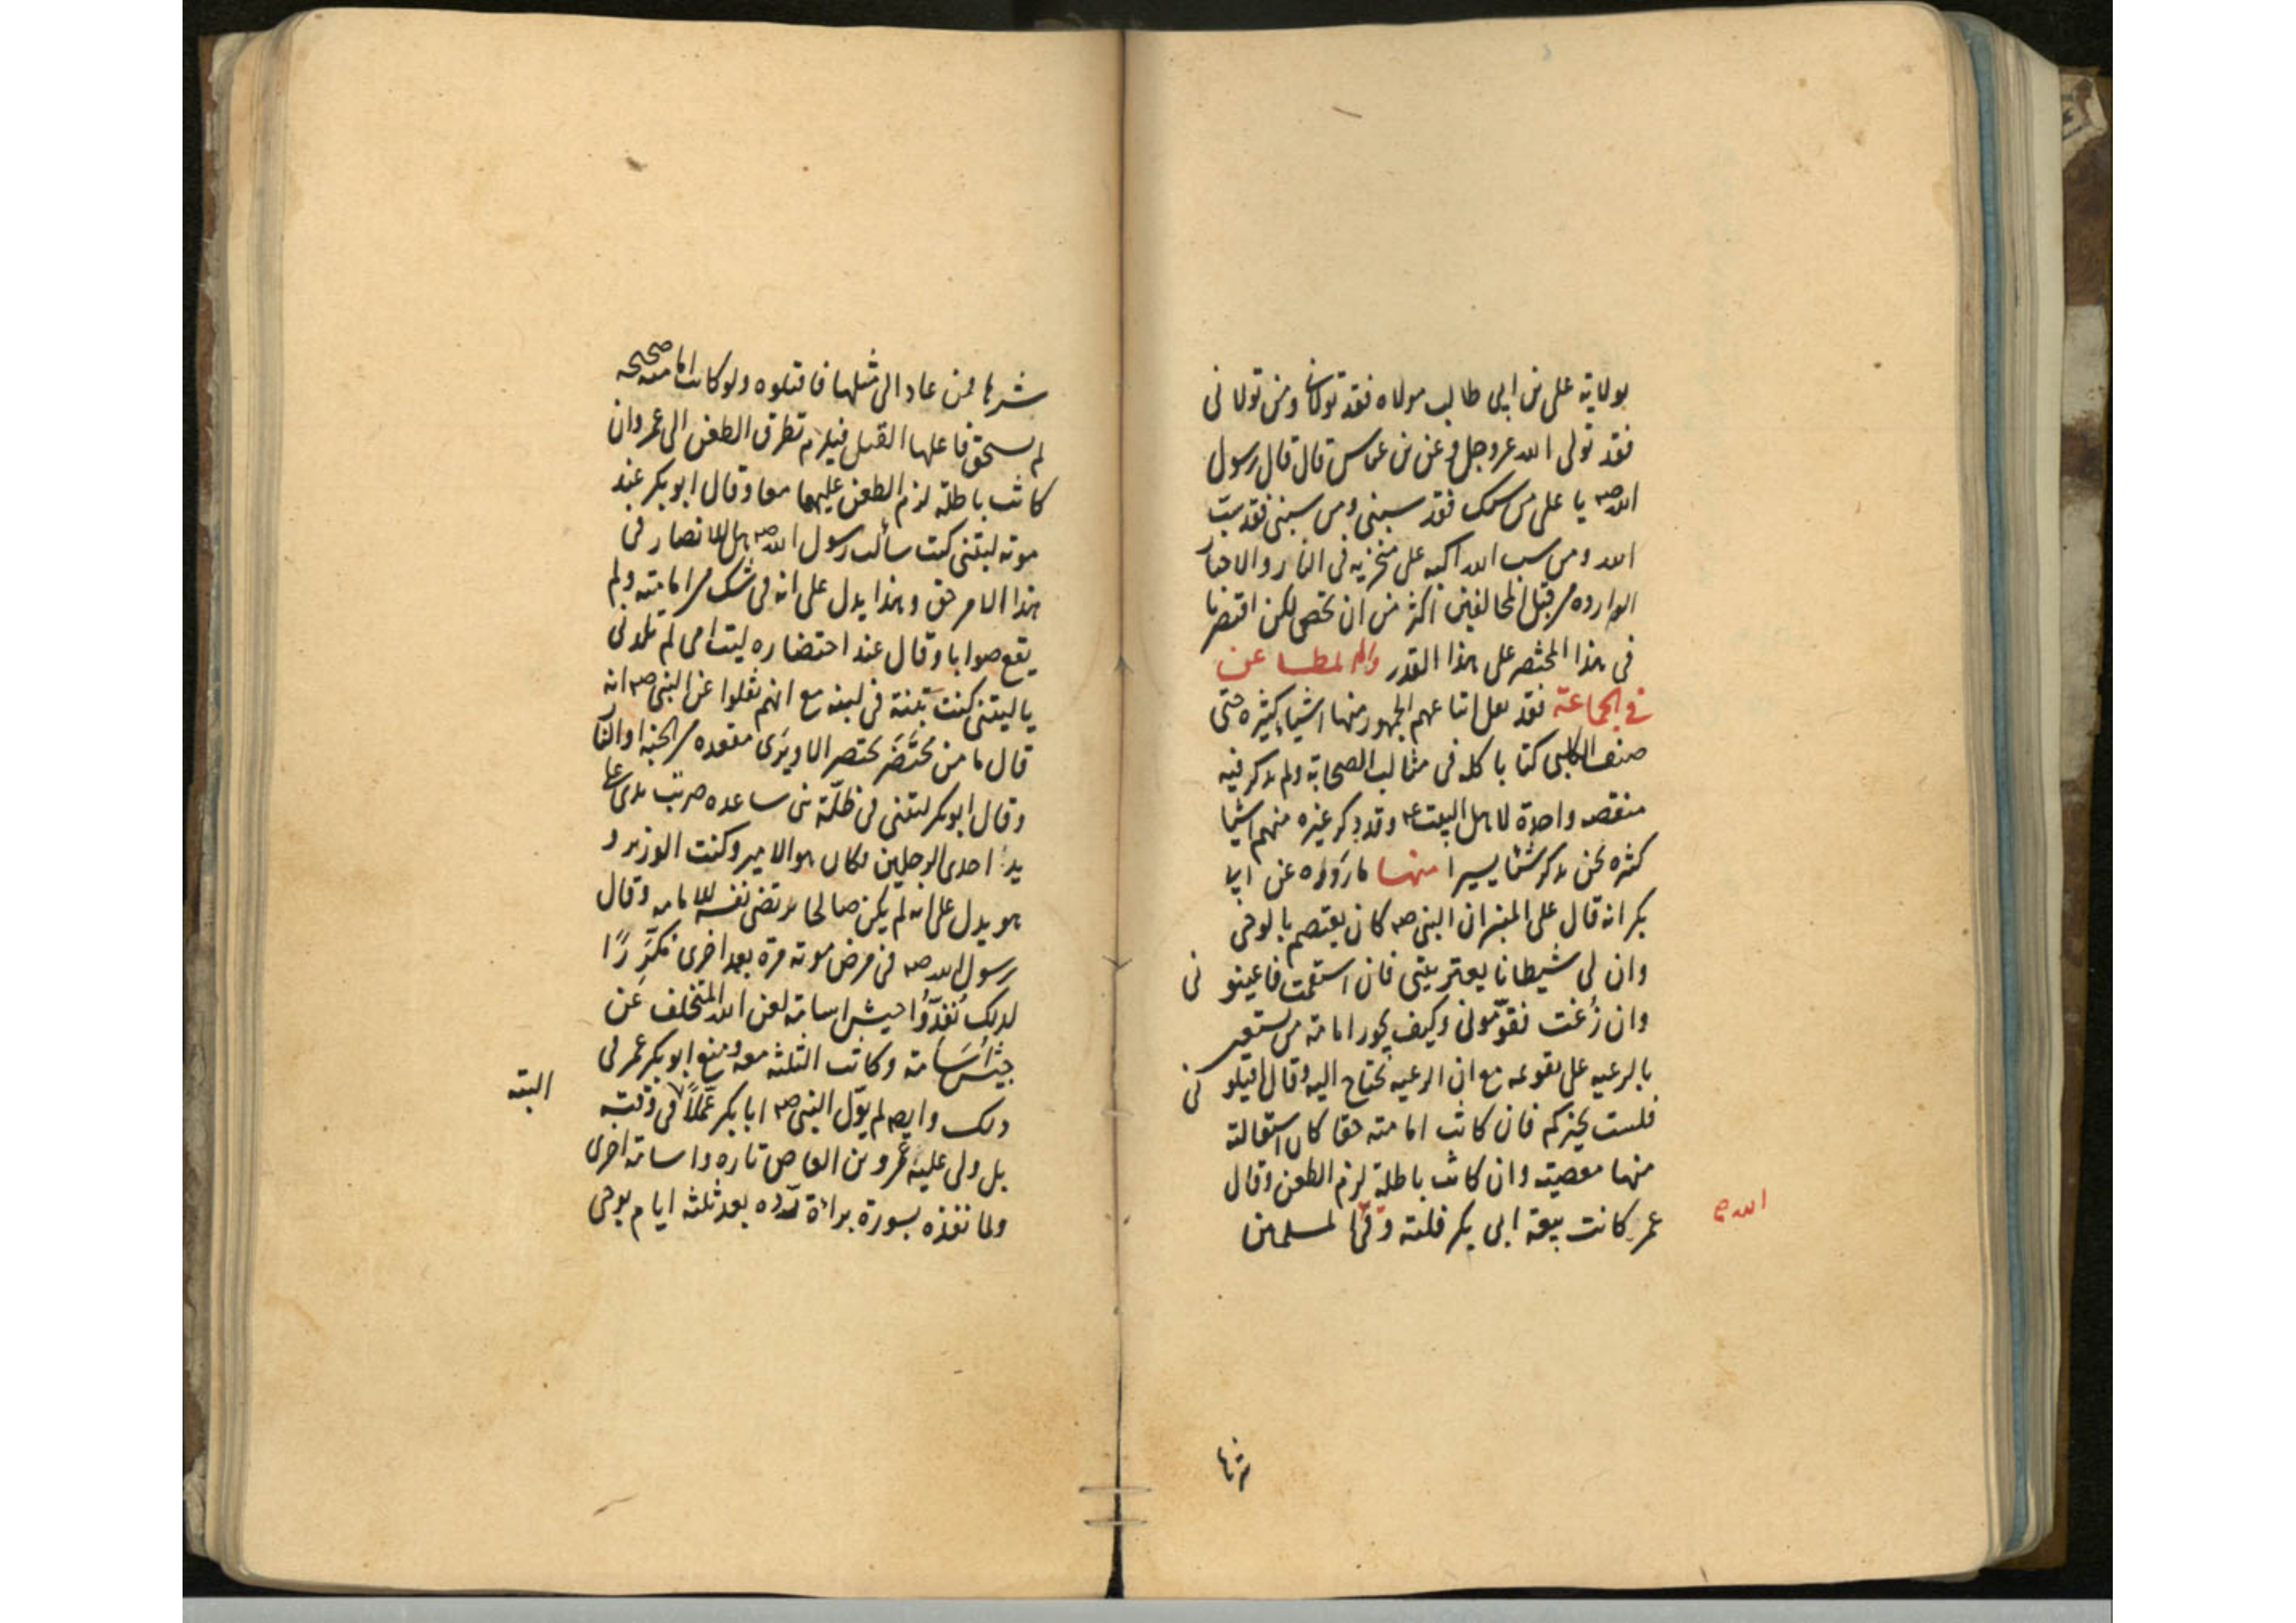 بولاية على بن ابى طالب مولاه فقد تولانى ومن تولانى
فقد تولى الله عز وجل وعن بن عباس قال قال رسول
الله صم يا على من سبك فقد سبنى ومن سبنى فقد سب
الله ومن سب الله اكبه على منخريه فى النار والاخبار
الواردة من قبل المخالفين اكثر من ان تحصى لكن اقتصرنا
فى هذا المختصر على هذا القدر واما المطاعن
فى الجماعة فقد نقل اتباعهم الجمهور منها اشياء كثيرة حتى
صنف الكلبى كتابا كله فى مثالب الصحابة ولم يذكر فيه
منقصة واحدة لاهل البيت ع وقد ذكر غيره منهم اشيا
كثيرة نحن نذكر شيئا يسيرا منها ما رووه عن ابى
بكر انه قال على المنبر ان النبى صم كان يعتصم بالوحى
وان لى شيطانا يعترينى فان استقمت فاعينونى
وان زغت فقومونى وكيف يجوز امامة من يستعين
بالرعيه على تقويمه مع ان الرعيه تحتاج اليه وقال اقيلونى
فلست بخيركم فان كانت امامته حقا كان استقالته
منها معصية وان كانت باطلة لزم الطعن وقال
عمر كانت بيعة ابى بكر فلتة وقى المسلمين
الله
شرها
شرها فمن عاد الى مثلها فاقتلوه ولو كانت امامته صحيحه
لم يستحق فاعلها القتل فيلزم تطرق الطعن الى عمر وان
كانت باطلة لزم الطعن عليهما معا وقال ابو بكر عند
موته ليتنى كنت سألت رسول الله صم هل للانصار فى
هذا الامر حق وهذا يدل على انه فى شك من امامته ولم
يقع صوابا وقال عند احتضاره ليت امى لم تلدنى
يا ليتنى كنت تبنة فى لبنه مع انهم نقلوا عن النبى صم انه
قال ما من محتضر يحتضر الا ويرى مقعده من الجنة او النار
وقال ابو بكر ليتنى فى ظلة بنى ساعده ضربت يدى على
يد احدى الرجلين فكان هو الامير وكنت الوزير و
هو يدل على انه لم يكن صالحا يرتضى نفسه للامامه وقال
رسول الله صم فى مرض موته مرة بعد اخرى مكررا
لذلك نفذوا جيش اسامة لعن الله المتخلف عن
جيش اسامة وكانت الثلثه معه ومنع ابو بكر عمر فى
ذلك وايضا لم يول النبى صم ابا بكر عملا فى وقته
البتة
بل ولى عليه عمرو بن العاص تاره واسامة اخرى
ولما نفذه بسورة براءة رده بعد ثلثة ايام بوحى